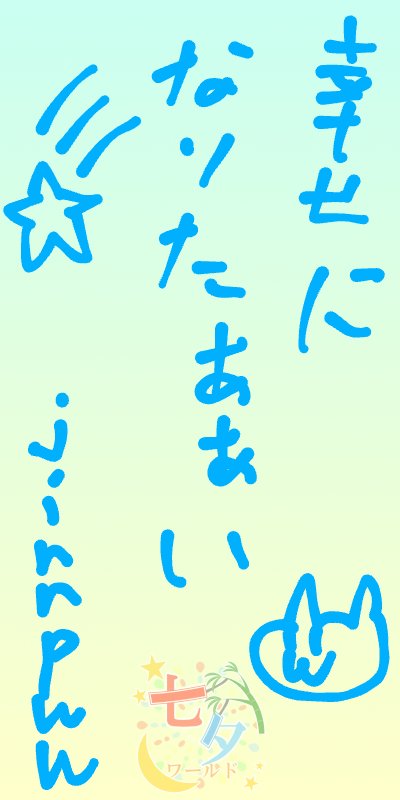 幸せに
なりたぁぁい
jinnpww
七夕
ワールド